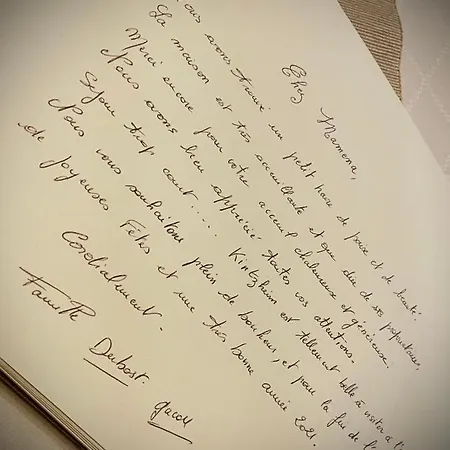 Chez Mamema,
ous avons trouvé un petit havre de paix et de beauté.
La maison est très accueillante et que dire de ses propriétaires,
Merci encore pour votre accueil chaleureux et généreux.
Nous avons bien apprécié toutes vos attentions.
Séjour trop court.... Kintzheim est tellement belle à visiter à l'
Nous vous souhaitons plein de bonheur, et pour la fin de l'
de Joyeuses Fêtes et une très bonne année 2021.
Cordialement.
Famille Dubost.